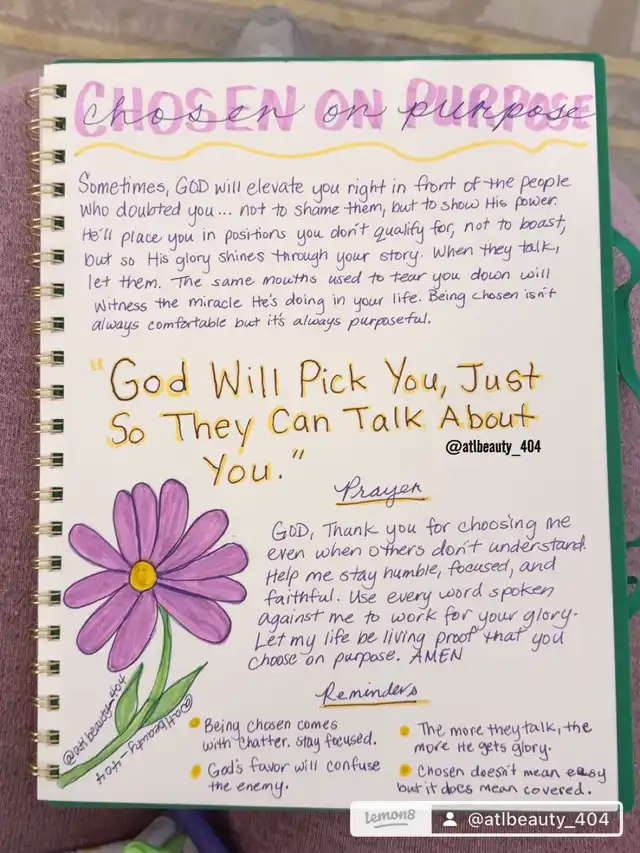 CHOSEN ON PURPOSE
chosen on purpose
Sometimes, GOD will elevate you right in front of the people
who doubted you... not to shame them, but to show His power.
He'll place you in positions you don't qualify for, not to boast,
but so His glory shines through your story. When they talk,
let them. The same mouths used to tear you down will
witness the miracle He's doing in your life. Being chosen isn't
always comfortable but it's always purposeful.
"God Will Pick You, Just
So They Can Talk About
You."
@atlbeauty_404
Prayer
GOD, Thank you for choosing me
even when others don't understand.
Help me stay humble, focused, and
faithful. Use every word spoken
against me to work for your glory.
Let my life be living proof that you
choose on purpose. AMEN
Reminders
Being chosen comes
with chatter. stay focused.
God's favor will confuse
the enemy.
The more they talk, the
more He gets glory.
Chosen doesn't mean easy
but it does mean covered.
@atlbeauty_404
@atlbeauty_404
lemon8
@atlbeauty_404